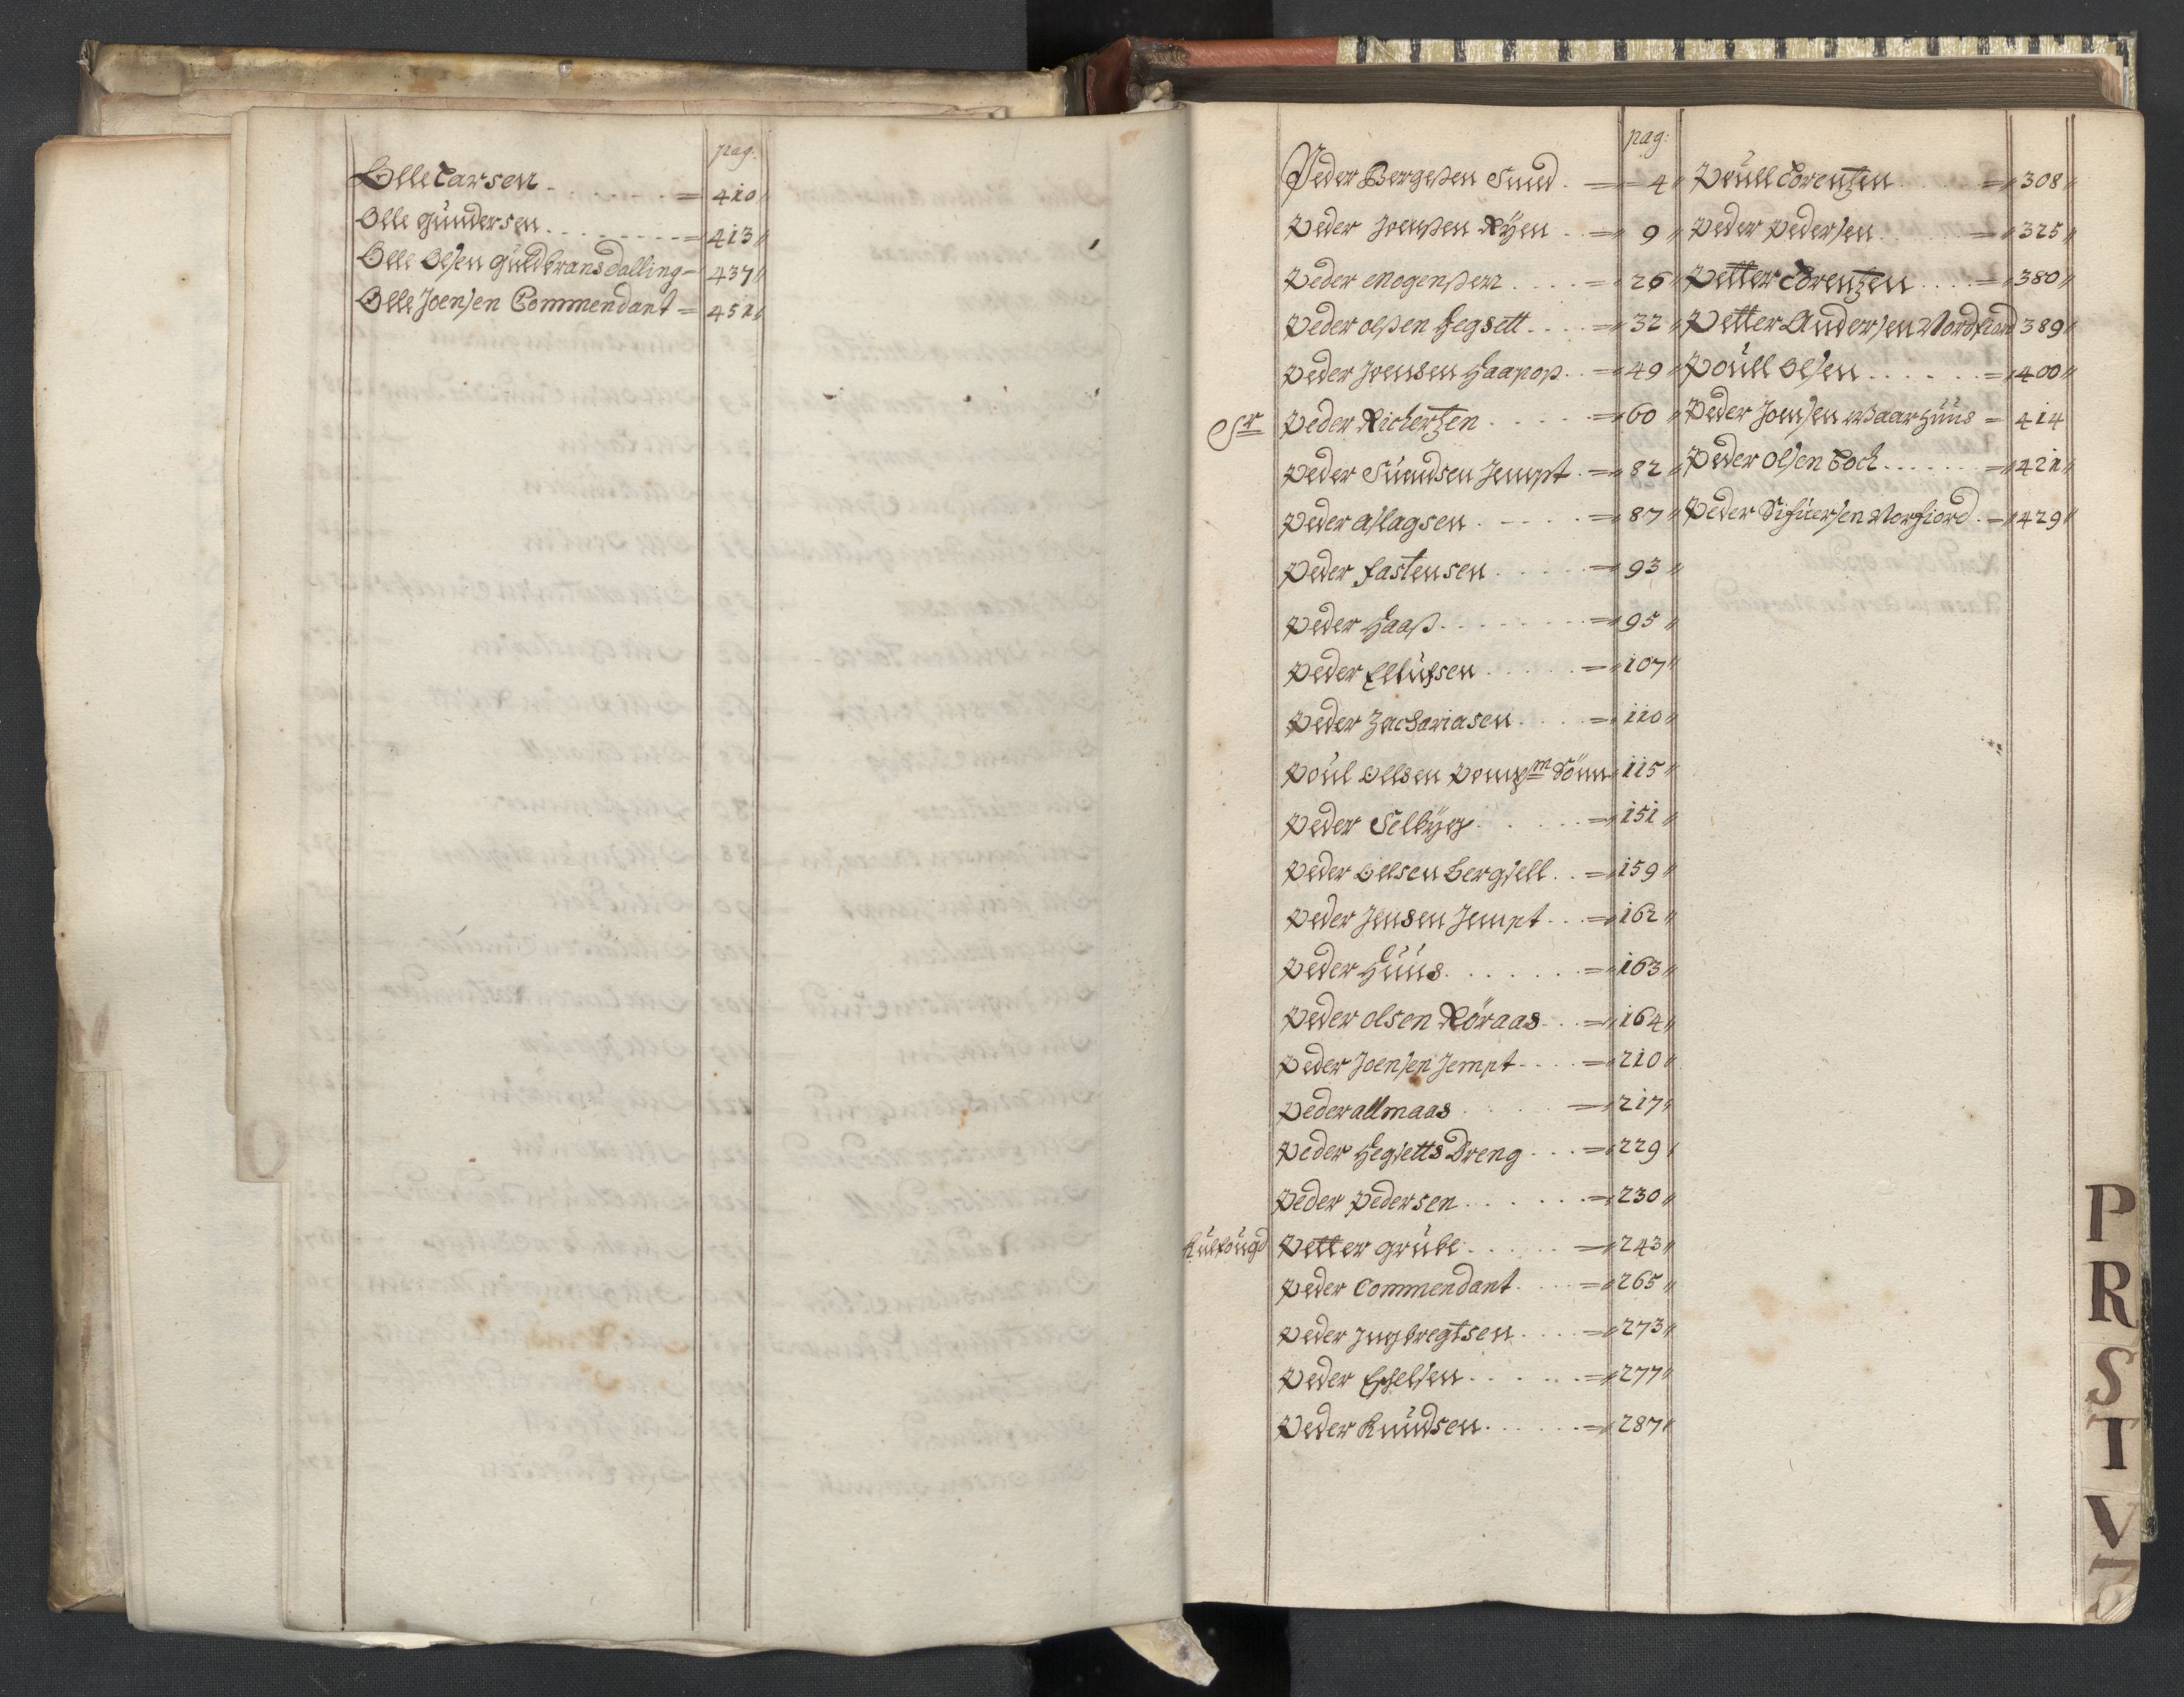 pag:
Olle Larsen = 410
Olle Gundersen = 413
Olle Olsen Guldbransdalling = 437
Olle Joensen Commendant = 451
pag:
Peder Bergesen Sund = 4
Peder Joensen Ryen = 9
Peder Mogensen = 26
Peder Olsen Hegsett = 32
Peder Joensen Haapos = 49
Sr Peder Richertzen = 60
Peder Suendsen Jempt = 82
Peder Aslagsen = 87
Peder Fastensen = 93
Peder Haas = 95
Peder Ellufsen = 107
Peder Zachariasen = 110
Poul Olsen Sönn 115
Peder Selbyg = 151
Peder Olsen Bergsell = 159
Peder Jensen Jempt = 162
Peder Huus = 163
Peder Olsen Röraas = 164
Peder Joensen Jempt = 210
Peder Allmaas = 217
Peder Hegsetts Dreng = 229
Peder Pedersen = 230
Kulfougd Petter Grube = 243
Peder Commendant = 265
Peder Ingbregtsen = 273
Peder = 277
Peder Knudsen = 287
Poull Lorentzen = 308
Peder Pedersen = 325
Petter Lorentzen = 380
Petter Andersen Nordfiord 389
Poull Olsen = 400
Peder Joensen Waarhuus = 414
Peder Olsen Kock = 421
Peder Sifuersen Norfiord = 429
O
P
R
S
T
V